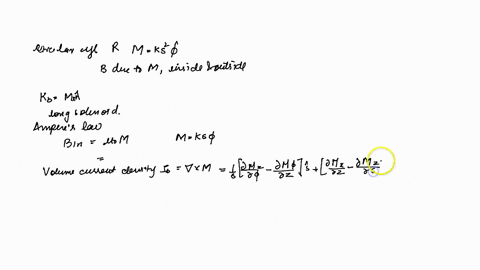 circular cyl R M = ks² φ̂
B due to M, inside & outside
K_b = M×n̂
long solenoid.
Ampere's law
B_in = μ₀M M = ksφ
=
Volume current density J_b = ∇×M = 1/s [∂M_z/∂φ − ∂M_φ/∂z] ŝ + [∂M_s/∂z − ∂M_z/∂s